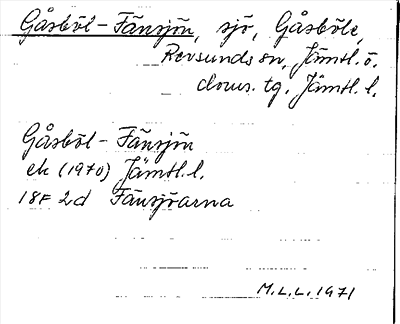 Gåsböl-Fänsjön, sjö, Gåsböle,
Revsunds sn, Jämtl. ö.
doms. tg. Jämtl. l.
Gåsböl-Fänsjön
ek (1970) Jämtl. l.
18F 2d Fänsjöarna
M.L.L. 1971